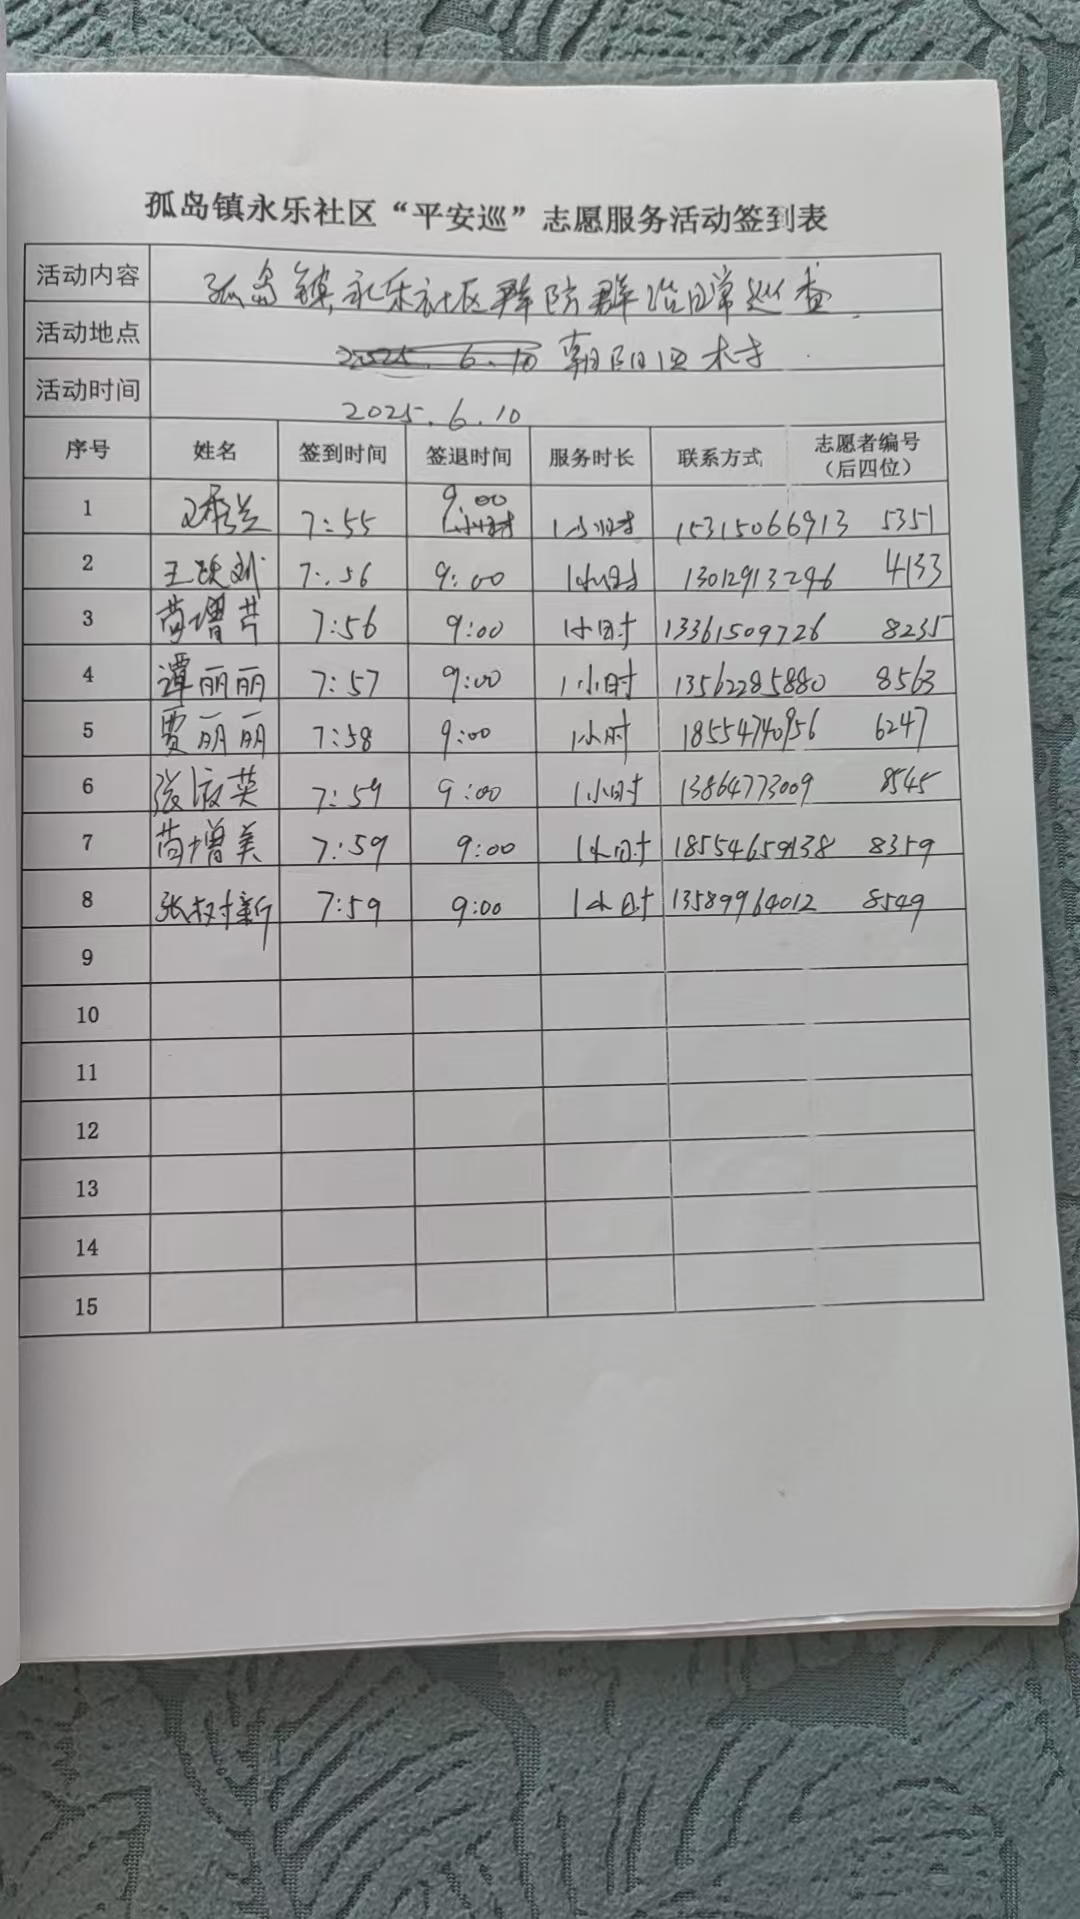 孤岛镇永乐社区“平安巡”志愿服务活动签到表
活动内容 孤岛镇永乐社区群防群治日常巡查
活动地点 2025.6.10 朝阳四村
活动时间 2025.6.10
序号 姓名 签到时间 签退时间 服务时长 联系方式 志愿者编号（后四位）
1 7:55 9:00 1小时 1小时 15315066913 5351
2 王 7:56 9:00 1小时 13012913296 4133
3 苗增芹 7:56 9:00 1小时 13361509726 8235
4 谭丽丽 7:57 9:00 1小时 13562285880 8563
5 贾丽丽 7:58 9:00 1小时 18554740956 6247
6 张淑英 7:59 9:00 1小时 13864773009 8545
7 苗增美 7:59 9:00 1小时 18554659138 8359
8 张树新 7:59 9:00 1小时 13589964012 8549
9
10
11
12
13
14
15